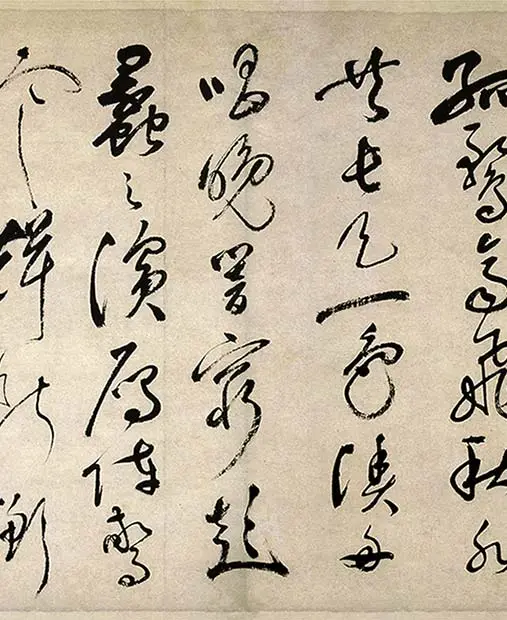 孤鶩齊飛秋水
共長天一色漁舟
唱晚響窮彭
蠡之濱雁陣驚
寒聲斷衡